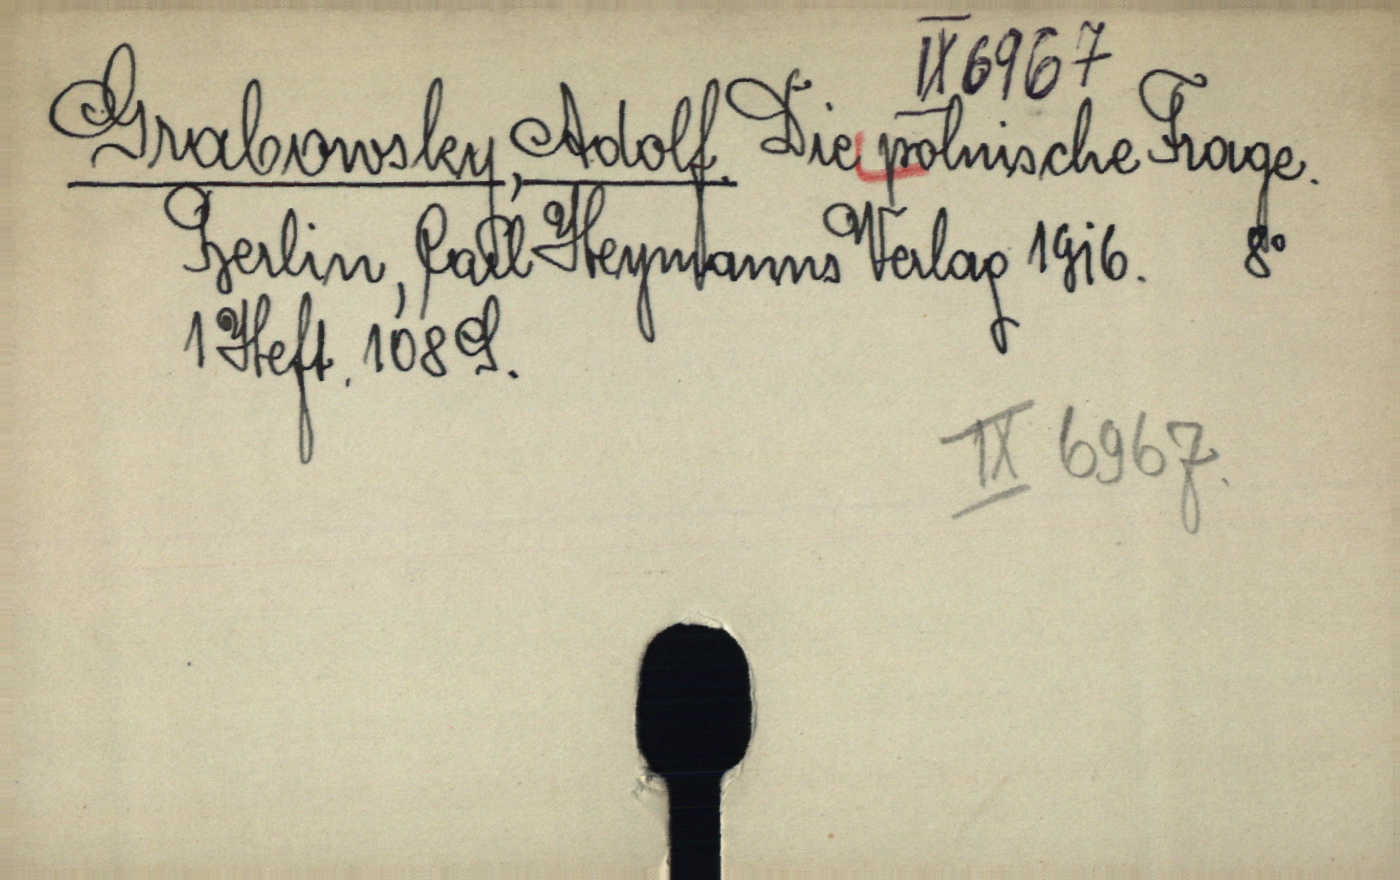 IX 6967
Grabowsky, Adolf. Die polnische Frage.
Berlin, Carl Heymanns Verlag 1916. 8°
1 Heft. 108 S.
IX 6967.